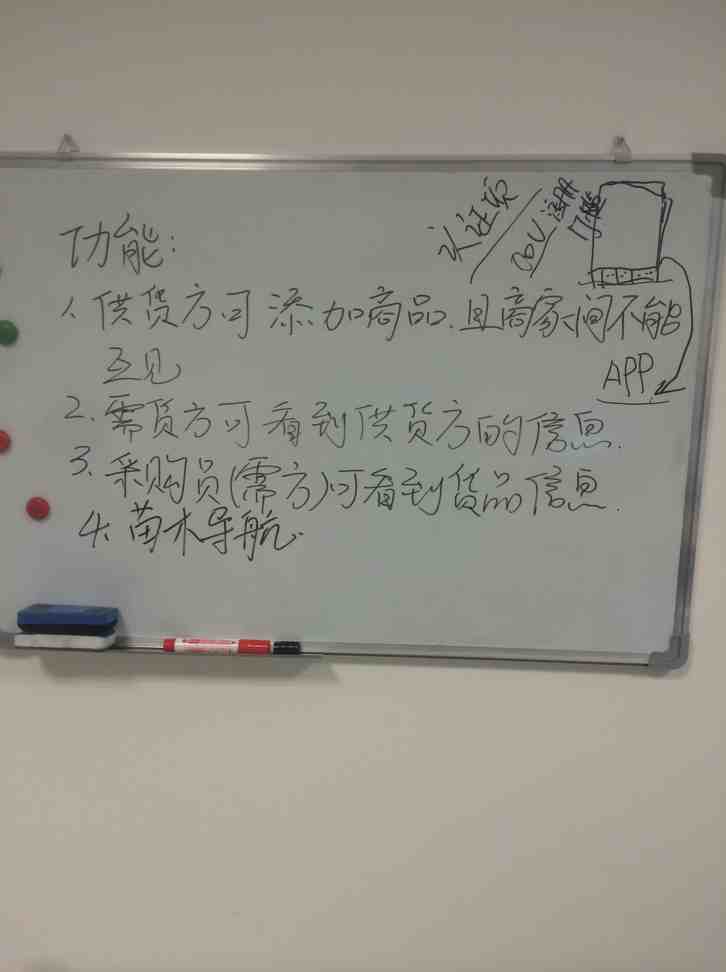 功能:
1. 供货方可添加商品.且商家间不能
互见
2. 需货方可看到供货方的信息.
3. 采购员(需方)可看到货品信息.
4. 苗木导航.
认证项
APP